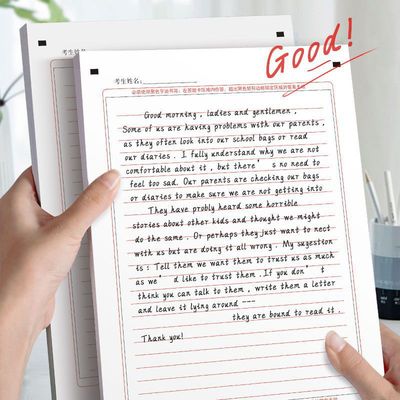 考生姓名:
Good!
考生姓名:
Good morning , ladies and gentlemen ,
Some of us are having problems with our parents ,
as they often look into our school bags or read
our diaries . I fully understand why we are not
comfortable about it , but there' s no need to
feel too sad. Our parents are checking our bags
or diaries to make sure we are not getting into
They have probly heard some horrible
stories about other kids and thought we might
do the same . Or perhaps they just want to nect
with us but are doing it all wrong . My sugestion
is : Tell them we want them to trust us as much
as we' d like to trust them . If you don' t
think you can talk to them , write them a letter
and leave it lying around ---
they are bound to read it .
Thank you!